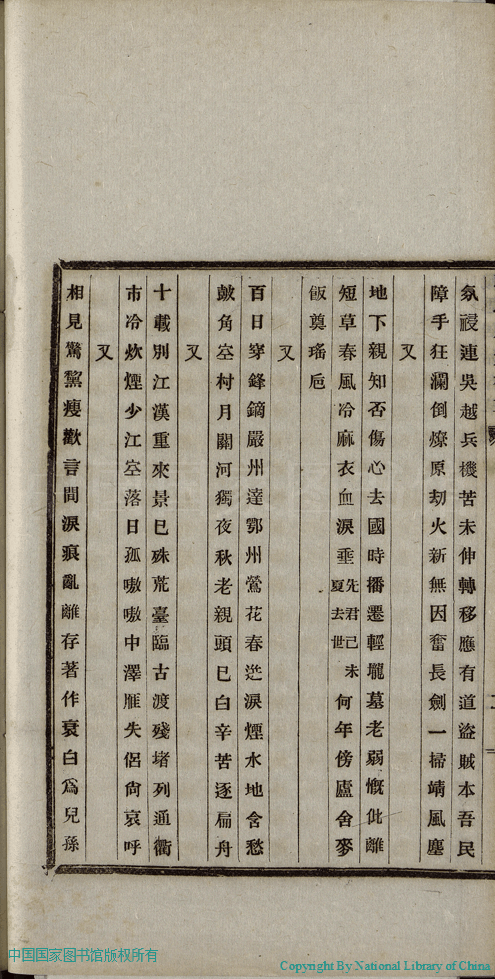 氛祲連吳越兵機苦未伸轉移應有道盜賊本吾民
障手狂瀾倒燎原劫火新無因奮長劍一掃靖風塵
又
地下親知否傷心去國時播遷輕壠墓老弱慨仳離
短草春風冷麻衣血淚垂先君己未夏去世何年傍廬舍麥
飯奠瑤卮
又
百日穿鋒鏑嚴州達鄂州鶯花春迸淚煙水地含愁
鼓角空村月關河獨夜秋老親頭已白辛苦逐扁舟
又
十載別江漢重來景已殊荒臺臨古渡殘堵列通衢
市冷炊煙少江空落日孤嗷嗷中澤雁失侶尙哀呼
又
相見驚黧瘦歡言間淚痕亂離存著作衰白爲兒孫
中国国家图书馆版权所有
Copyright By National Library of China